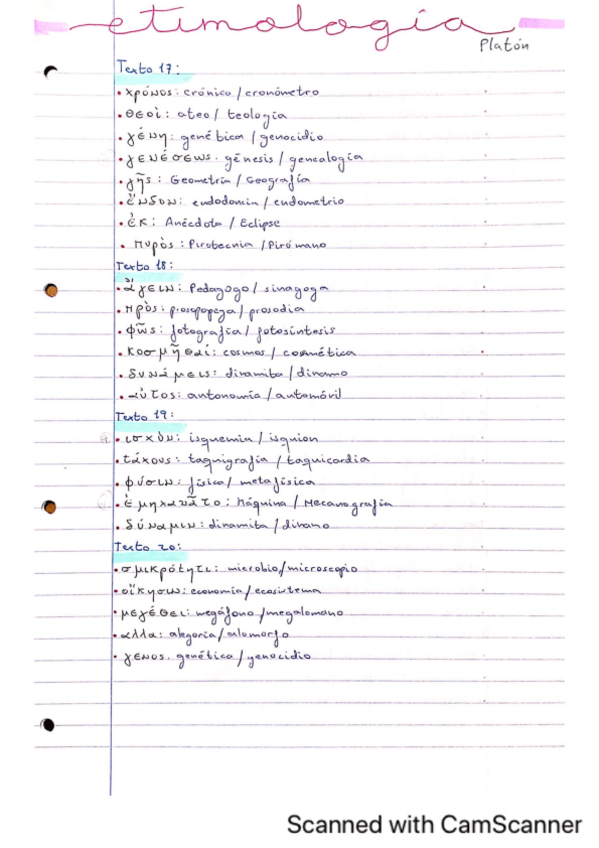 etimología
Platón
Texto 17:
• χρόνος: crónico / cronómetro
• θεοὶ: ateo / teología
• γένη: genética / genocidio
• γενέσεως: génesis / genealogía
• γῆς: Geometría / Geografía
• ἔνδον: endodoncia / endometrio
• ἐκ: Anécdota / Eclipse
• πυρὸς: Pirotecnia / Pirómano
Texto 18:
• ἄγειν: Pedagogo / sinagoga
• πρὸς: prosopopeya / prosodia
• φῶς: fotografía / fotosíntesis
• κοσμῆσαί: cosmos / cosmética
• δυνάμεις: dinamita / dinamo
• αὐτος: autonomía / automóvil
Texto 19:
• ισχὺν: isquemia / isquion
• τάχους: taquigrafía / taquicardia
• φύσιν: física / metafísica
• ἐμηχανᾶτο: Máquina / Mecanografía
• δύναμιν: dinamita / dinamo
Texto 20:
• σμικρότητι: microbio / microscopio
• οἴκησιν: economía / ecosistema
• μεγέθει: megáfono / megalomano
• αλλα: alegoría / alomorfo
• γενος: genética / genocidio
Scanned with CamScanner